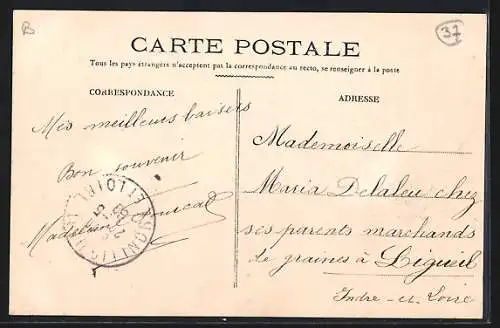 B
37
CARTE POSTALE
Tous les pays étrangers n'acceptent pas la correspondance au recto, se renseigner à la poste
CORRESPONDANCE
ADRESSE
Mes meilleurs baisers
Bon souvenir
Madeleine
Mademoiselle
Maria Delaleu chez
ses parents marchands
de graines à Ligueil
Indre-et-Loire